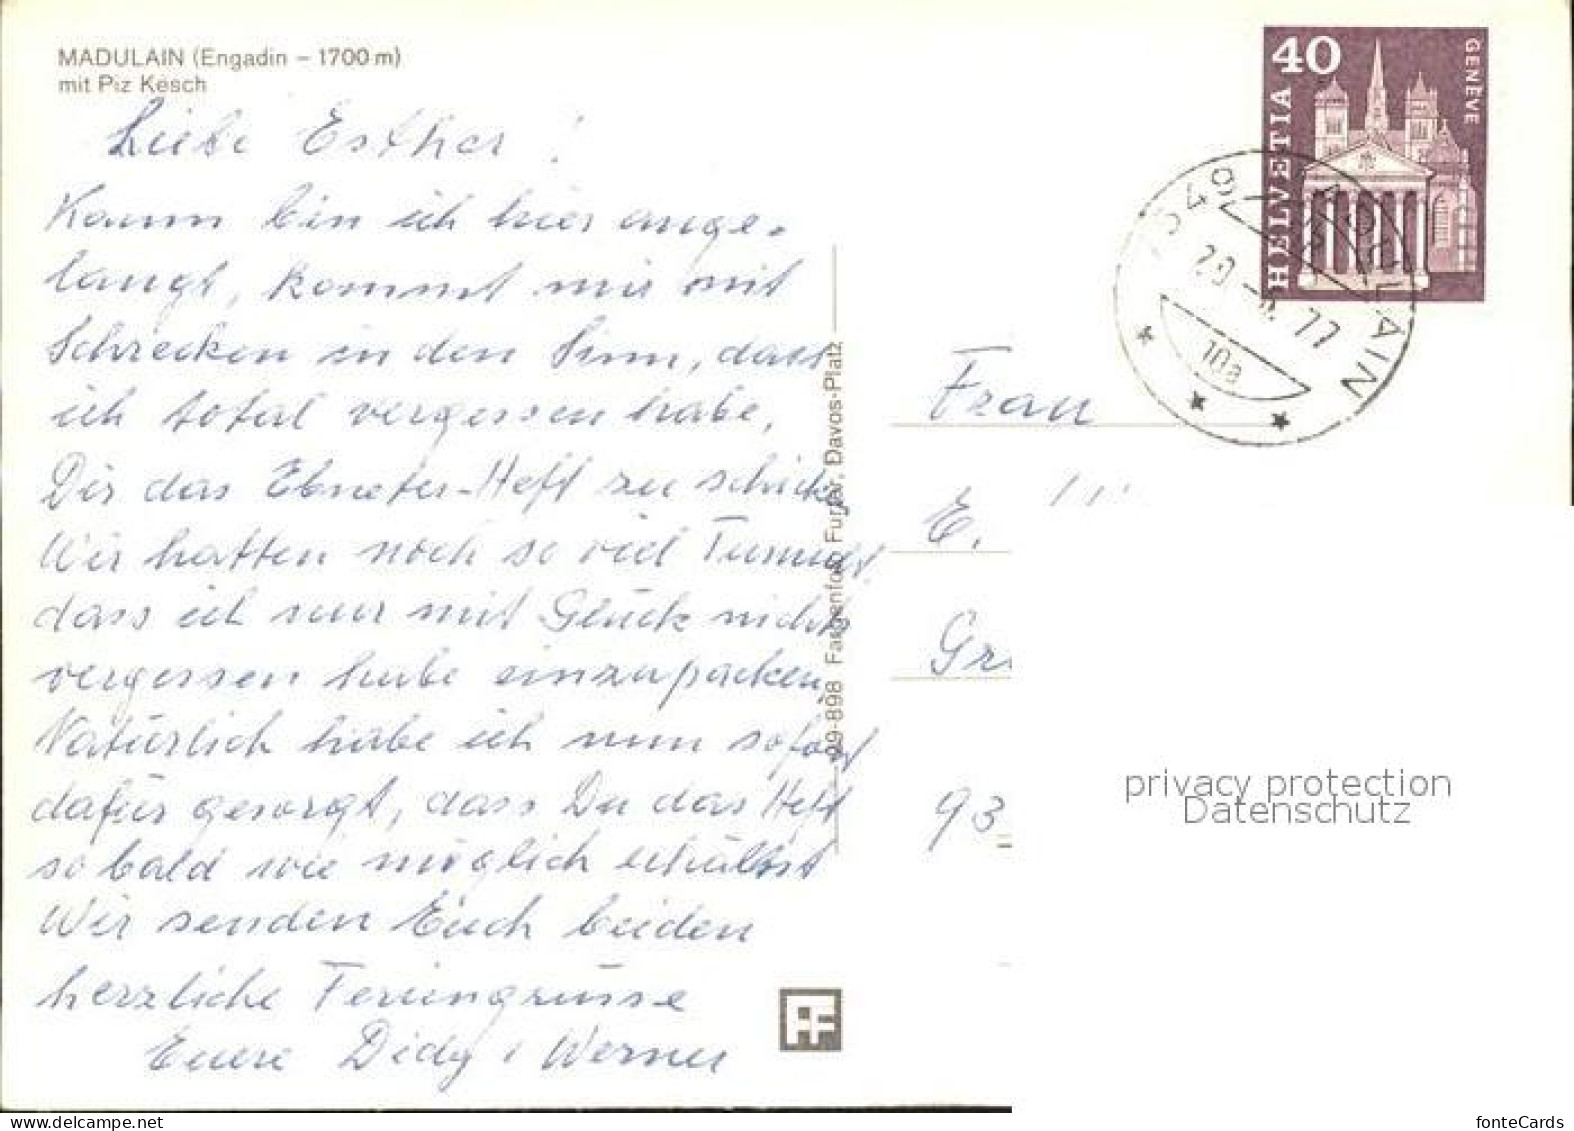 MADULAIN (Engadin – 1700 m)
mit Piz Kesch
Liebe Esther!
Kaum bin ich hier ange-
langt, kommt mir mit
Schrecken in den Sinn, dass
ich total vergessen habe,
Dir das Ebneter-Heft zu schicken
Wir hatten noch so viel Tumult
dass ich nur mit Glück nichts
vergessen habe einzupacken,
Natürlich habe ich nun sofort
dafür gesorgt, dass Du das Heft
so bald wie möglich erhältst
Wir senden Euch beiden
herzliche Feriengrüsse
Eure Didy, Werner
29-898 Farbenfoto Furter, Davos-Platz
FF
40
HELVETIA
GENÈVE
MADULAIN
77
10a
Frau
E.
Gr
93
privacy protection
Datenschutz
fonteCards